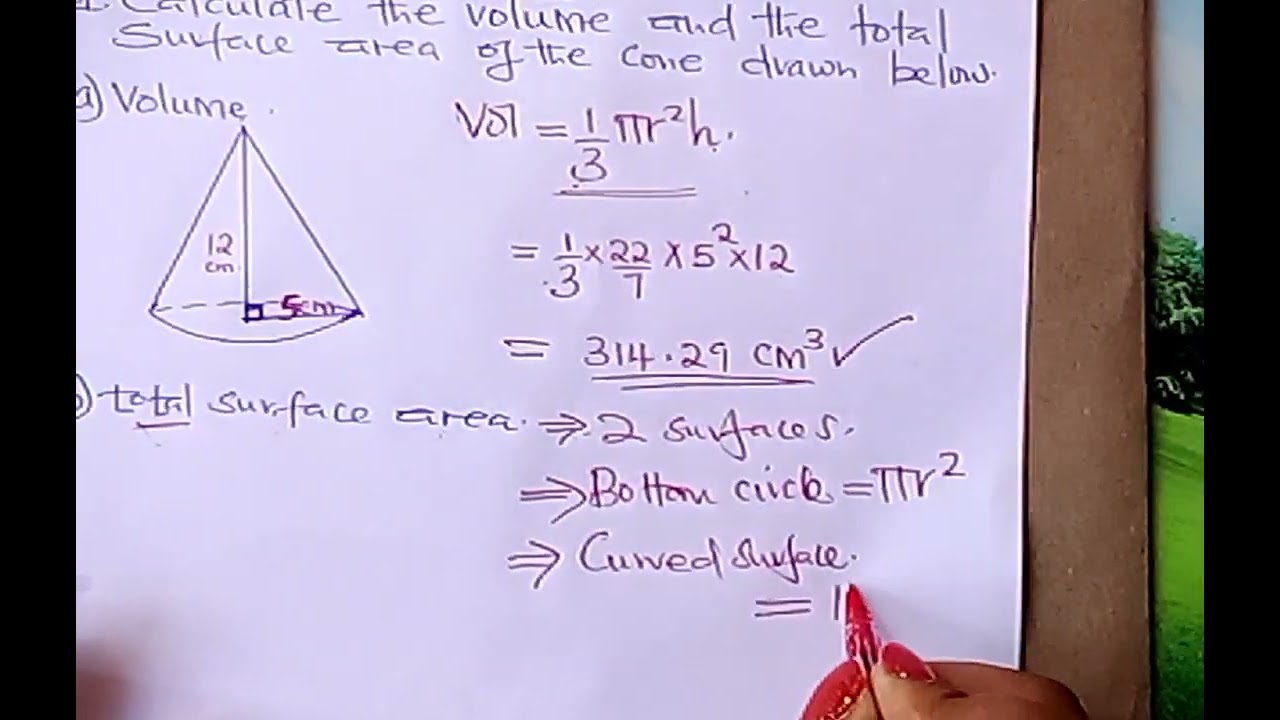 1. Calculate the volume and the total
Surface area of the cone drawn below.
a) Volume.
Vol = 1/3 πr²h.
12
cm
5cm
= 1/3 × 22/7 × 5² × 12
= 314.29 cm³ ✓
b) total surface area. ⇒ 2 surfaces.
⇒ Bottom circle = πr²
⇒ Curved surface.
=